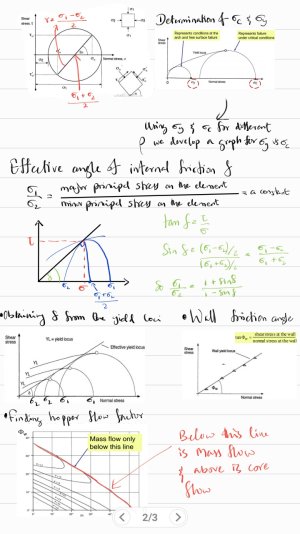 γ = σ₁ - σ₂ / 2
Shear stress, τ
Normal stress, σ
σ₁ + σ₂ / 2
Determination of σc & σy
Represents conditions at the arch and free surface failure
Represents failure under critical conditions
Shear stress
Yield locus
Normal stress
Using σy & σc for different
ρ we develop a graph for σy vs σc
Effective angle of internal friction δ
σ₁ / σ₂ = major principal stress on the element / minor principal stress on the element = a constant
τ
δ
σ₂ σ σ₁
σ₁ + σ₂ / 2
tan δ = τ / σ
Sin δ = (σ₁ - σ₂)/2 / (σ₁ + σ₂)/2 = σ₁ - σ₂ / σ₁ + σ₂
so σ₁ / σ₂ = 1 + sin δ / 1 - sin δ
• Obtaining δ from the yield loci
Shear stress
YL = yield locus
Effective yield locus
YL
YL
YL
δ
σ₂ σ₂ σ₁ σ₁
Normal stress
• Wall friction angle
Shear stress
tan Φw = shear stress at the wall / normal stress at the wall
Wall yield locus
Φw
Normal stress
• Finding hopper flow factor
Φw
Mass flow only below this line
0 10° 20° 30° 40°
Below this line
is mass flow
& above is core
flow
2/3